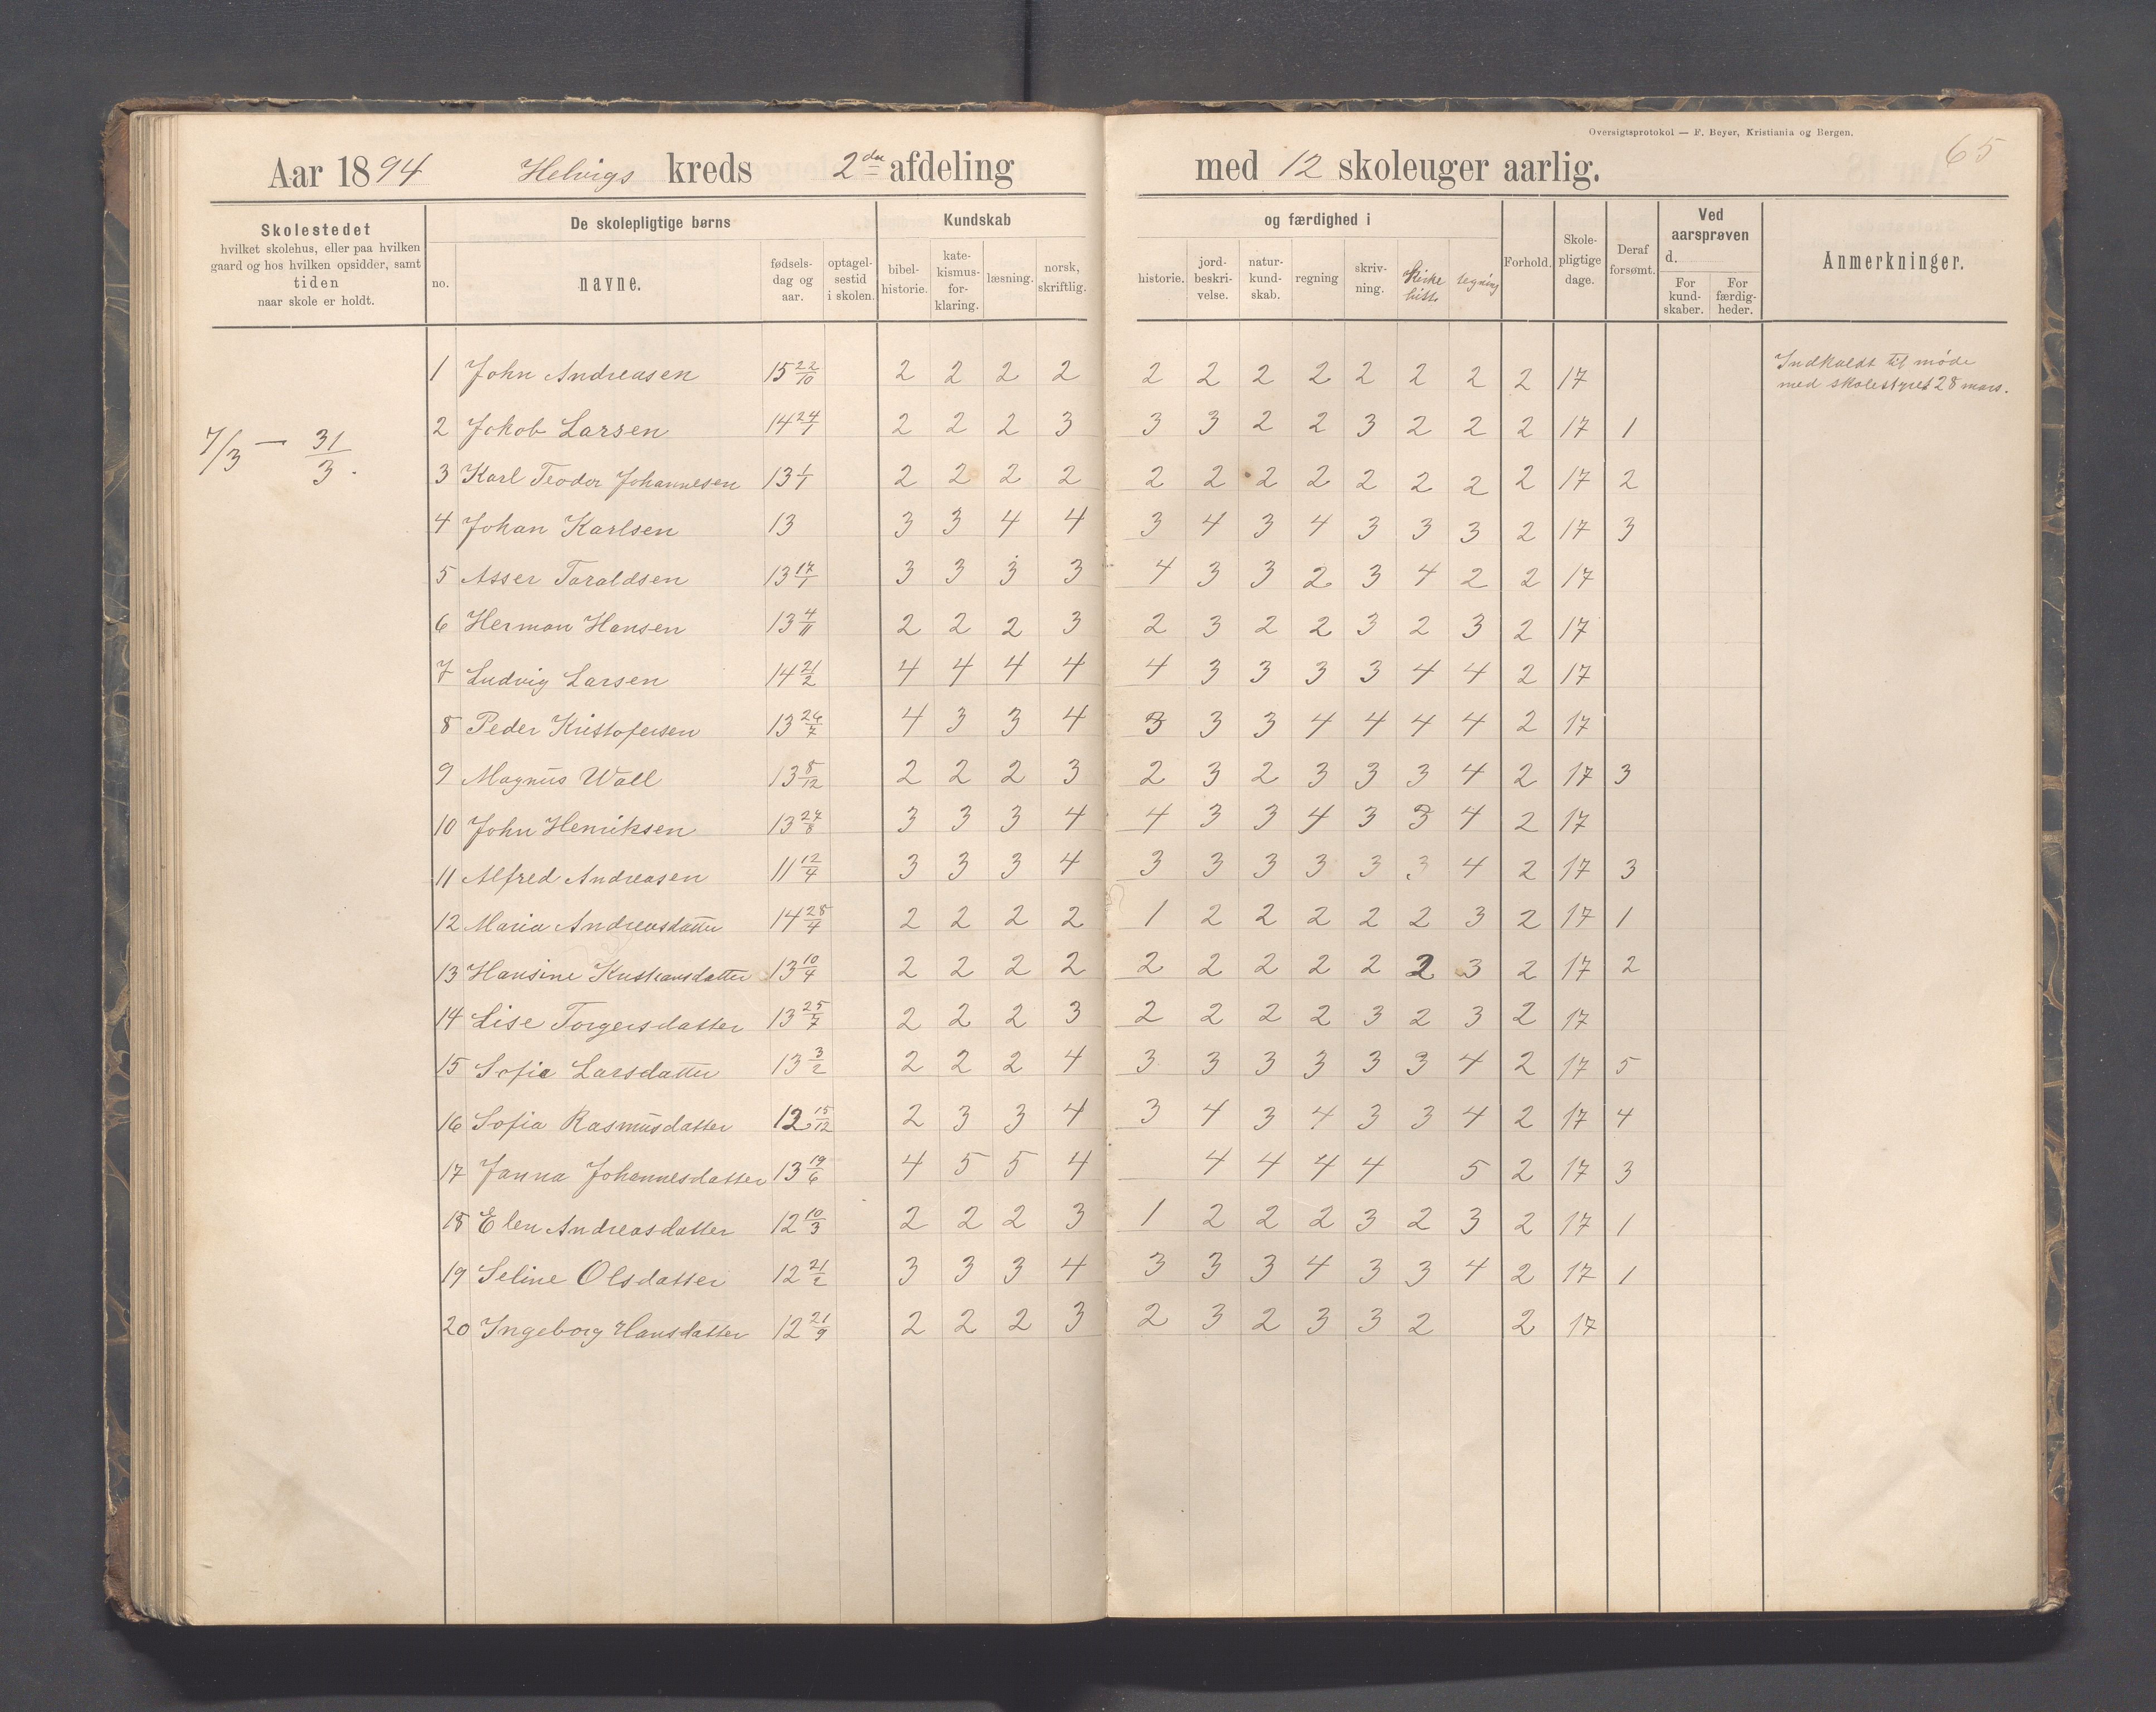 Oversigtsprotokol — F. Beyer, Kristiania og Bergen.
65
Aar 1894 Helvigs kreds 2den afdeling med 12 skoleuger aarlig.
Skolestedet
hvilket skolehus, eller paa hvilken
gaard og hos hvilken opsidder, samt
tiden
naar skole er holdt.
De skolepligtige børns
no. navne. fødsels-dag og aar. optagel-sestid i skolen.
Kundskab og færdighed i
bibel-historie. kate-kismus-for-klaring. læsning. norsk, skriftlig. historie. jord-beskri-velse. natur-kund-skab. regning skriv-ning. Kirke hist. tegning
Forhold. Skole-pligtige dage. Deraf forsømt.
Ved aarsprøven d.
For kund-skaber. For færdig-heder.
Anmerkninger.
7/3 — 31/3.
1 John Andreasen 15 22/10 2 2 2 2 2 2 2 2 2 2 2 2 17 Indkaldt til møde
med skolestyret 28 mars.
2 Jokob Larsen 14 24/1 2 2 2 3 3 3 2 2 3 2 2 2 17 1
3 Karl Teodor Johannesen 13 1/1 2 2 2 2 2 2 2 2 2 2 2 2 17 2
4 Johan Karlsen 13 3 3 4 4 3 4 3 4 3 3 3 2 17 3
5 Asser Taraldsen 13 17/1 3 3 3 3 4 3 3 2 3 4 2 2 17
6 Herman Hansen 13 4/11 2 2 2 3 2 3 2 2 3 2 3 2 17
7 Ludvig Larsen 14 21/2 4 4 4 4 4 3 3 3 3 4 4 2 17
8 Peder Kristofersen 13 26/7 4 3 3 4 3 3 3 4 4 4 4 2 17
9 Magnus Wall 13 8/12 2 2 2 3 2 3 2 3 3 3 4 2 17 3
10 John Henriksen 13 27/8 3 3 3 4 4 3 3 4 3 3 4 2 17
11 Alfred Andreasen 11 12/4 3 3 3 4 3 3 3 3 3 3 4 2 17 3
12 Maria Andreasdatter 14 28/4 2 2 2 2 1 2 2 2 2 2 3 2 17 1
13 Hansine Kristiansdatter 13 10/4 2 2 2 2 2 2 2 2 2 2 3 2 17 2
14 Lise Torgersdatter 13 25/7 2 2 2 3 2 2 2 2 3 2 3 2 17
15 Sofie Larsdatter 13 3/2 2 2 2 4 3 3 3 3 3 3 4 2 17 5
16 Sofia Rasmusdatter 12 15/12 2 3 3 4 3 4 3 4 3 3 4 2 17 4
17 Janna Johannesdatter 13 19/6 4 5 5 4 4 4 4 4 5 2 17 3
18 Elen Andreasdatter 12 10/3 2 2 2 3 1 2 2 2 3 2 3 2 17 1
19 Seline Olsdatter 12 21/2 3 3 3 4 3 3 3 4 3 3 4 2 17 1
20 Ingeborg Hansdatter 12 21/9 2 2 2 3 2 3 2 3 3 2 2 17